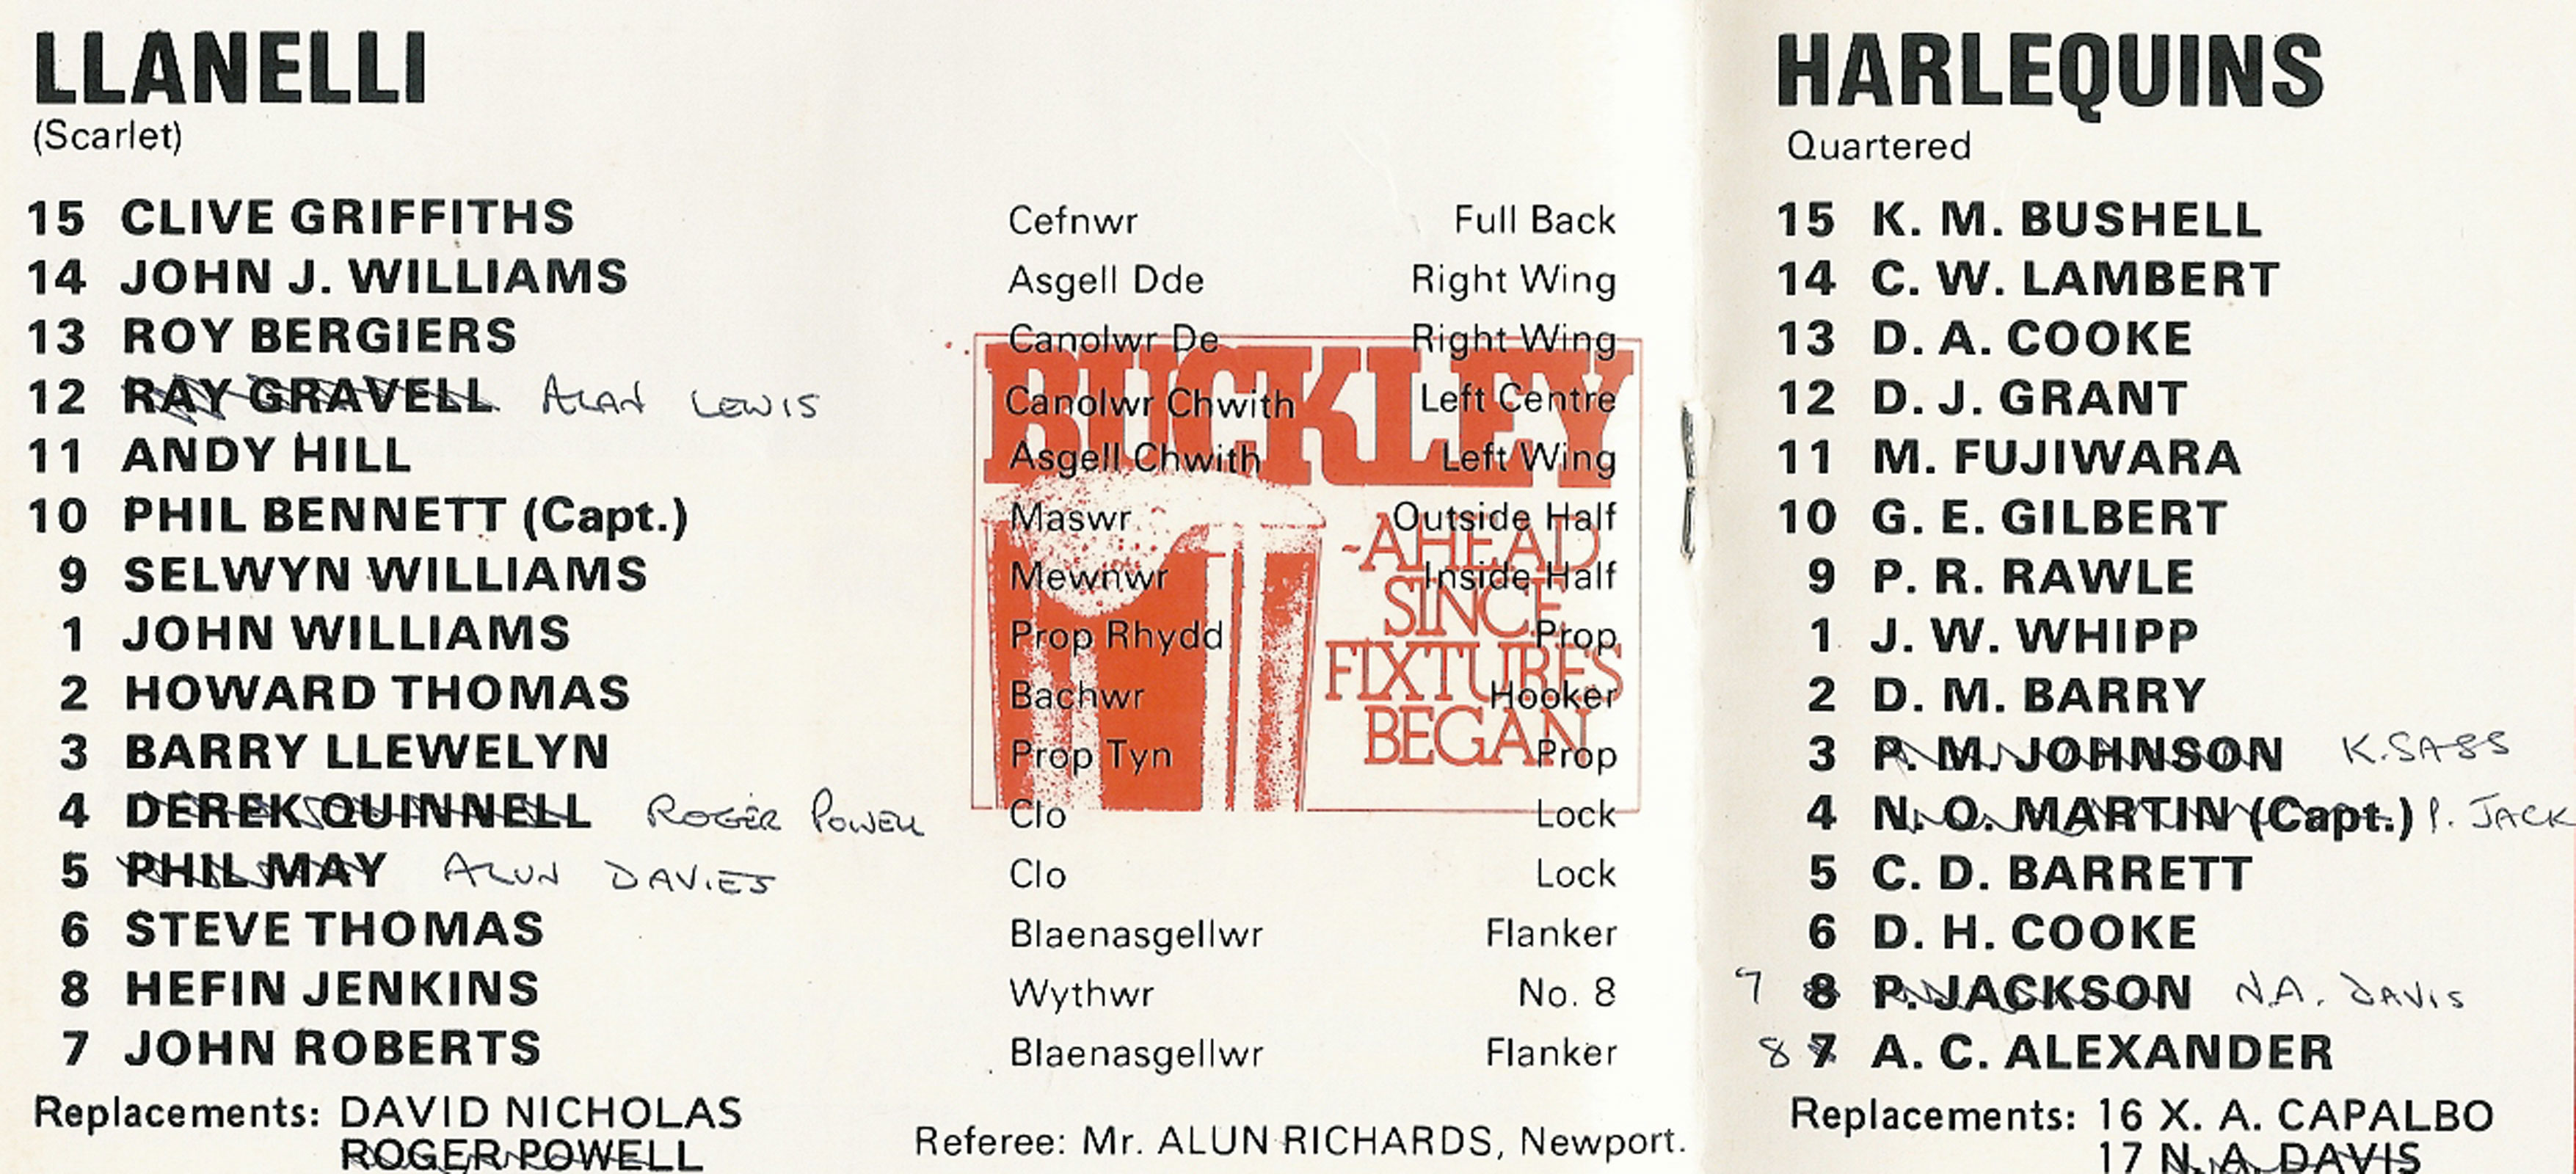 LLANELLI
(Scarlet)
15 CLIVE GRIFFITHS
14 JOHN J. WILLIAMS
13 ROY BERGIERS
12 RAY GRAVELL ALAN LEWIS
11 ANDY HILL
10 PHIL BENNETT (Capt.)
9 SELWYN WILLIAMS
1 JOHN WILLIAMS
2 HOWARD THOMAS
3 BARRY LLEWELYN
4 DEREK QUINNELL ROGER POWELL
5 PHIL MAY ALUN DAVIES
6 STEVE THOMAS
8 HEFIN JENKINS
7 JOHN ROBERTS
Replacements: DAVID NICHOLAS
ROGER POWELL
Cefnwr Full Back
Asgell Dde Right Wing
Canolwr De Right Wing
Canolwr Chwith Left Centre
Asgell Chwith Left Wing
Maswr Outside Half
Mewnwr Inside Half
Prop Rhydd Prop
Bachwr Hooker
Prop Tyn Prop
Clo Lock
Clo Lock
Blaenasgellwr Flanker
Wythwr No. 8
Blaenasgellwr Flanker
BUCKLEY
-AHEAD
SINCE
FIXTURES
BEGAN
Referee: Mr. ALUN RICHARDS, Newport.
HARLEQUINS
Quartered
15 K. M. BUSHELL
14 C. W. LAMBERT
13 D. A. COOKE
12 D. J. GRANT
11 M. FUJIWARA
10 G. E. GILBERT
9 P. R. RAWLE
1 J. W. WHIPP
2 D. M. BARRY
3 P. M. JOHNSON K. SASS
4 N. O. MARTIN (Capt.) P. JACK
5 C. D. BARRETT
6 D. H. COOKE
7 8 P. JACKSON N.A. DAVIS
8 7 A. C. ALEXANDER
Replacements: 16 X. A. CAPALBO
17 N. A. DAVIS